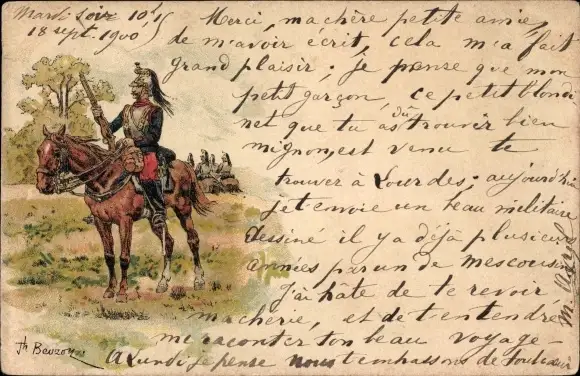 Mardi soir 10h 15
18 sept. 1900
Merci, ma chère petite amie,
de m'avoir écrit, cela m'a fait
grand plaisir; je pense que mon
petit garçon, ce petit blondi
net que tu as dû trouver bien
mignon, est venu te
trouver à Lourdes; aujourd'hui
je t'envoie un beau militaire
dessiné il y a déjà plusieurs
années par un de mes cousins
J'ai hâte de te revoir
ma chérie, et de t'entendre
me raconter ton beau voyage -
A Lundi je pense nous t'embrassons de tout cœur
M.
Th Beuzon